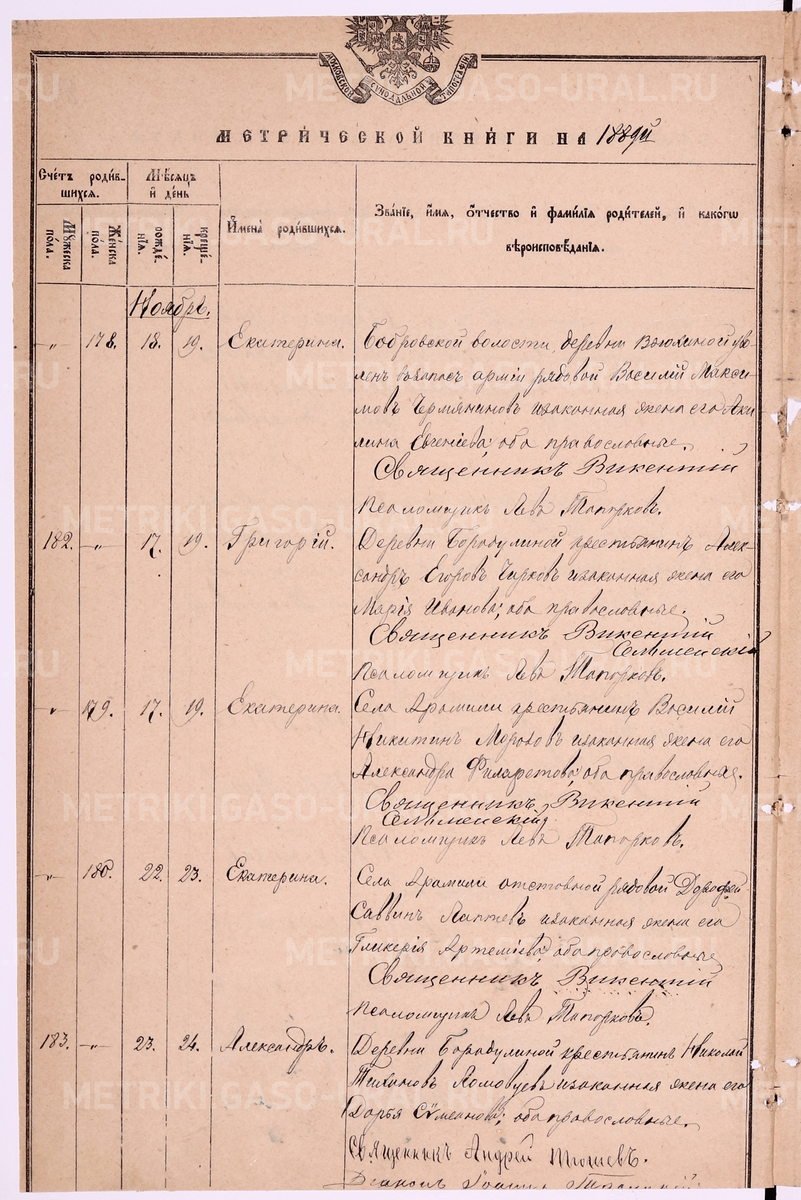 МОСКОВСКОЙ СѴНОДАЛЬНОЙ ТИПОГРАФІИ
МЕТРИ́ЧЕСКОЙ КНИ́ГИ НА 1889й
Сче́тъ роди́вшихся.
Мѣ́сяцъ и де́нь
Имена̀ роди́вшихся.
Зва́ніе, и́мя, о́тчество и фами́лія роди́телей, и како́гѡ вѣроисповѣ́данія.
Мꙋ́жеска по́ла.
Же́нска по́ла.
рожде́нїя.
креще́нїя.
Ноябрь.
-„- 178. 18. 19. Екатерина. Бобровской волости, деревни Вьюхиной уво-
ленъ въ запасъ арміи рядовой Василій Макси-
мовъ Чермяниновъ и законная жена его Аки-
лина Евгеніева; оба православные.
Священникъ Викентій
Псаломщикъ Левъ Топорковъ.
182. -„- 17. 19. Григорій. Деревни Бородулиной крестьянинъ Алек-
сандръ Егоровъ Чирковъ и законная жена его
Марія Иванова; оба православные.
Священникъ Викентій
Сельменскій
Псаломщикъ Левъ Топорковъ.
-„- 179. 17. 19. Екатерина. Села Арамили крестьянинъ Василій
Никитинъ Морозовъ и законная жена его
Александра Филаретова; оба православныя.
Священникъ Викентій
Сельменскій
Псаломщикъ Левъ Топорковъ.
-„- 180. 22. 23. Екатерина. Села Арамили отставной рядовой Дорофей
Саввинъ Лаптевъ и законная жена его
Гликерія Артеміева; оба православные
Священникъ Викентій
Псаломщикъ Левъ Топорковъ.
183. -„- 23. 24. Александръ. Деревни Бородулиной крестьянинъ Николай
Тихановъ и законная жена его
Дарья Сѵмеанова; оба православные.
Священникъ Андрей
Діаконъ Іоаннъ
METRIKI.GASO-URAL.RU